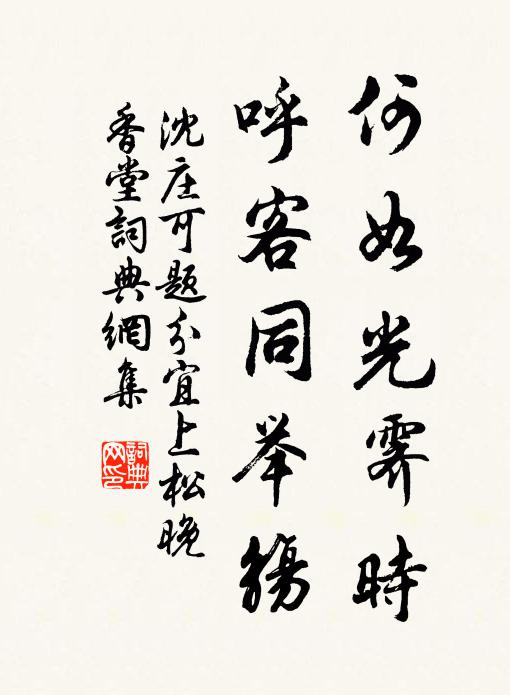 何如光霁時
呼客同举觴
沈庄可題分宜上松晚
香堂詞典網集
詞典网印